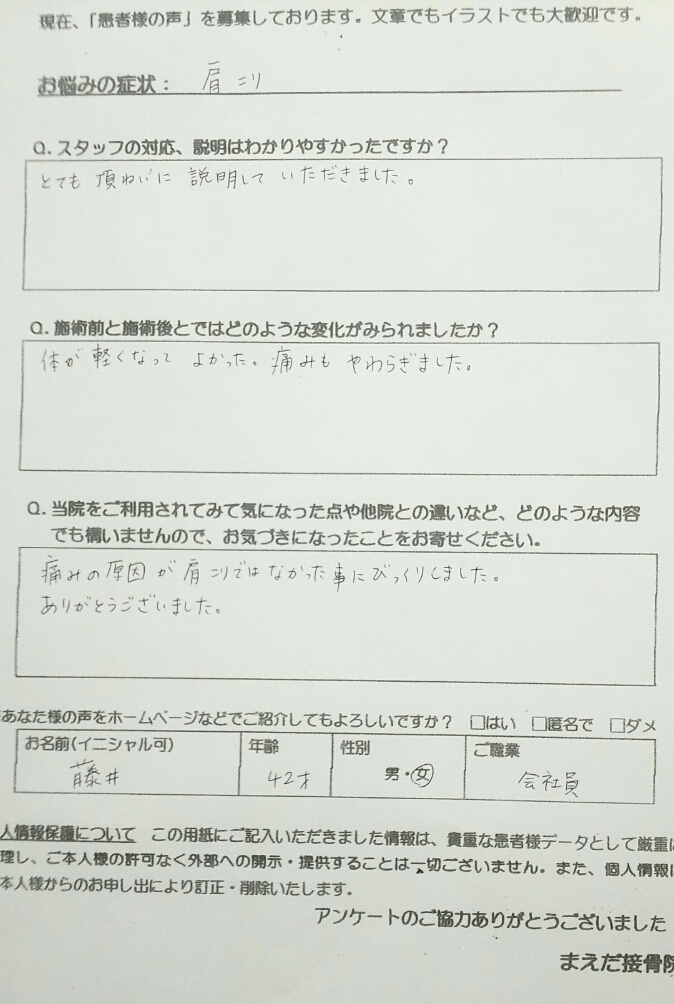 現在、「患者様の声」を募集しております。文章でもイラストでも大歓迎です。
お悩みの症状： 肩こり
Q. スタッフの対応、説明はわかりやすかったですか？
とても 頂ねいに 説明して いただきました。
Q. 施術前と施術後とではどのような変化がみられましたか？
体が 軽くなって よかった。痛みも やわらぎました。
Q. 当院をご利用されてみて気になった点や他院との違いなど、どのような内容
でも構いませんので、お気づきになったことをお寄せください。
痛みの原因が肩こりではなかった事にびっくりしました。
ありがとうございました。
あなた様の声をホームページなどでご紹介してもよろしいですか？ □はい □匿名で □ダメ
お名前(イニシャル可) 年齢 性別 ご職業
藤井 42才 男・女 会社員
人情報保護について この用紙にご記入いただきました情報は、貴重な患者様データとして厳重に
理し、ご本人様の許可なく外部への開示・提供することは一切ございません。また、個人情報は
本人様からのお申し出により訂正・削除いたします。
アンケートのご協力ありがとうございました
まえだ接骨院